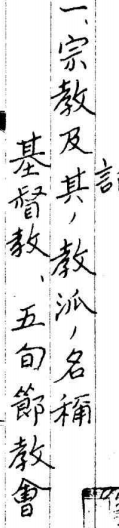 一、宗教及其ノ教派ノ名稱
基督教、五旬節教會